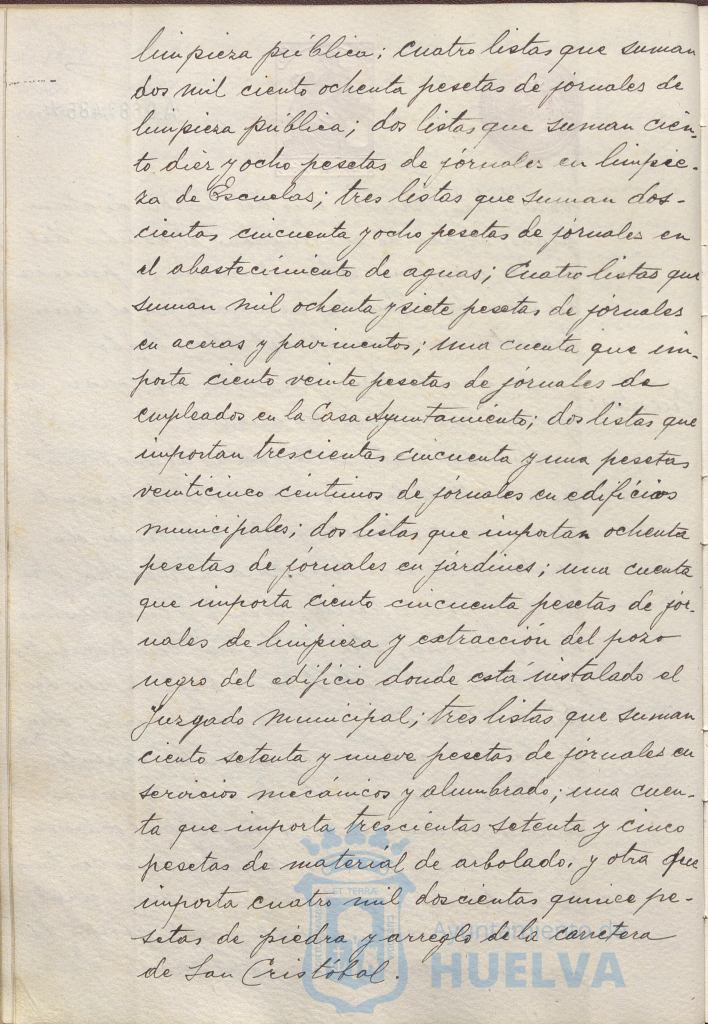 limpieza pública; cuatro listas que suman
dos mil ciento ochenta pesetas de jornales de
limpieza pública; dos listas que suman cien-
to diez y ocho pesetas de jornales en limpie-
za de Escuelas; tres listas que suman dos-
cientas cincuenta y ocho pesetas de jornales en
el abastecimiento de aguas; cuatro listas que
suman mil ochenta y siete pesetas de jornales
en aceras y pavimentos; una cuenta que im-
porta ciento veinte pesetas de jornales de
empleados en la Casa Ayuntamiento; dos listas que
importan trescientas cincuenta y una pesetas
veinticinco céntimos de jornales en edificios
municipales; dos listas que importan ochenta
pesetas de jornales en jardines; una cuenta
que importa ciento cincuenta pesetas de jor-
nales de limpieza y extracción del pozo
negro del edificio donde está instalado el
Juzgado Municipal; tres listas que suman
ciento setenta y nueve pesetas de jornales en
servicios mecánicos y alumbrado; una cuen-
ta que importa trescientas setenta y cinco
pesetas de material de arbolado, y otra que
importa cuatro mil doscientas quince pe-
setas de piedra y arreglo de la carretera
de San Cristóbal.
Ayuntamiento de
HUELVA